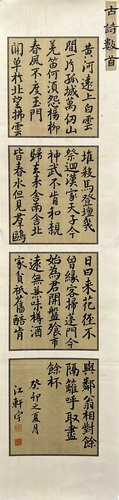 古詩數首
黃河遠上白雲
間一片孤城萬仞山
羌笛何須怨楊柳
春風不度玉門
關單于北望拂雲
堆殺馬登壇幾
祭迴漢家天子今
神武不肯和親
歸去來舍南舍北
皆春水但見群鷗
日日來花徑不
曾緣客掃蓬門今
始為君開盤飧市
遠無兼味樽酒
家貧祇舊醅肯
與鄰翁相對飲
隔籬呼取盡
餘杯
癸卯之夏月
江軒宇